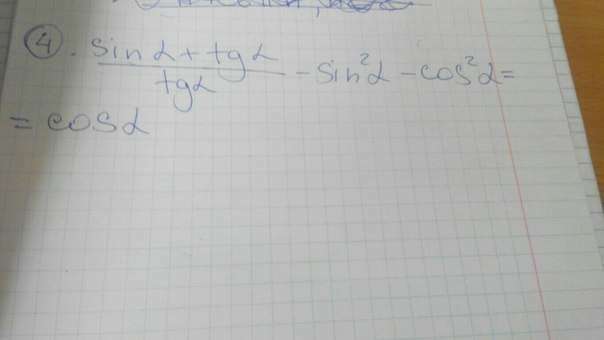 ④. (sin α + tg α) / tg α − sin²α − cos²α =
= cos α